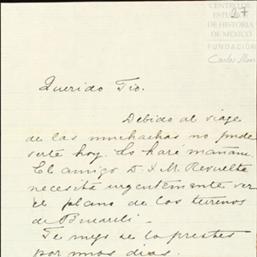 CENTRO DE
ESTUDIOS
DE HISTORIA
DE MÉXICO
FUNDACIÓN
Carlos Slim
27
Querido Tío.
Debido al viage
de las muchachas no pude
verte hoy. Lo haré mañana
El amigo D. J. M. Revuelta
necesita urgentemente ver
el plano de los terrenos
de
Te ruego se lo prestes
por unos dias.